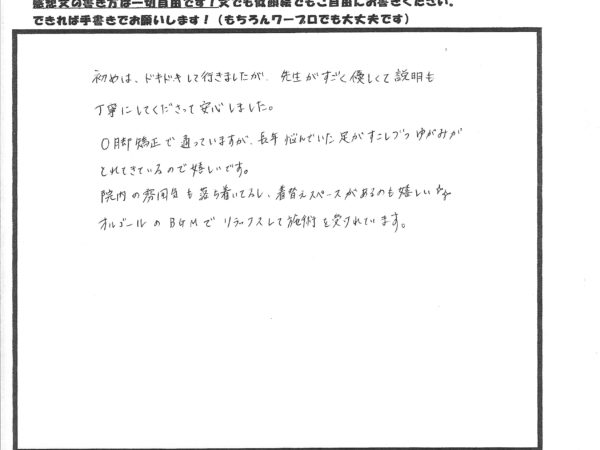 感想文の書き方は一切自由です！文でも似顔絵でもご自由にお書きください。
できれば手書きでお願いします！（もちろんワープロでも大丈夫です）
初めは、ドキドキして行きましたが、先生がすごく優しくて説明も
丁寧にしてくださって安心しました。
O脚矯正で通っていますが、長年悩んでいた足がすこしづつゆがみが
とれてきているので嬉しいです。
院内の雰囲気も落ち着いてるし、着替えスペースがあるのも嬉しい☆☆
オルゴールのBGMでリラックスして施術を受けれています。